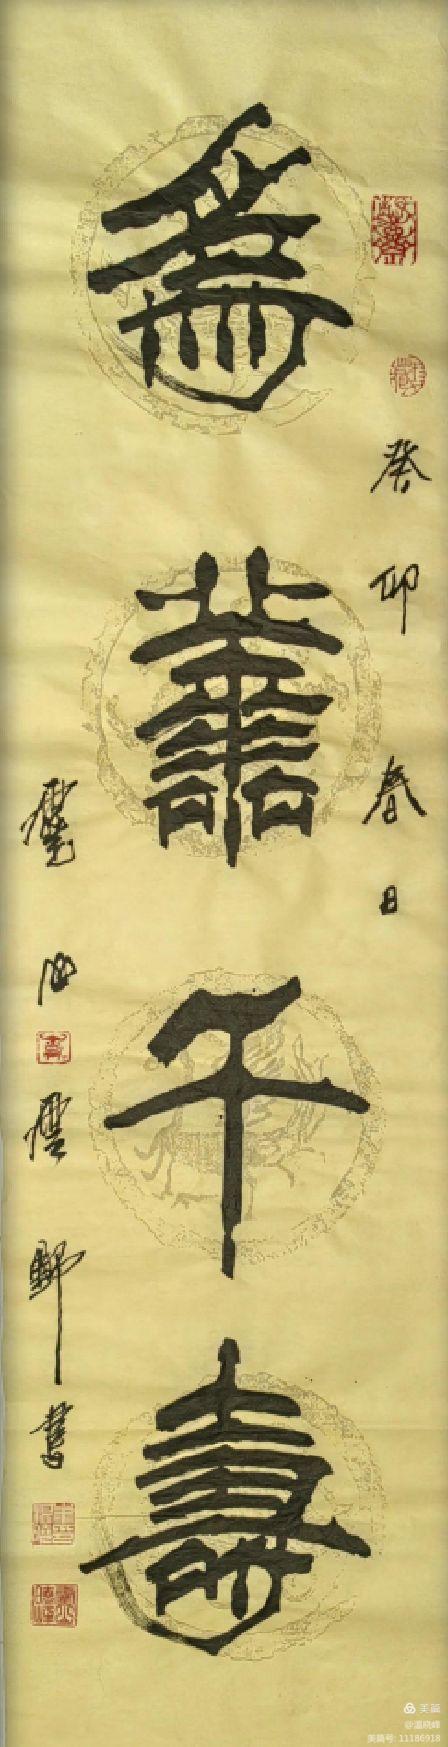 為善千壽
癸卯春日
靈山雲野書
美篇
@温晓峰
美篇号: 11186918